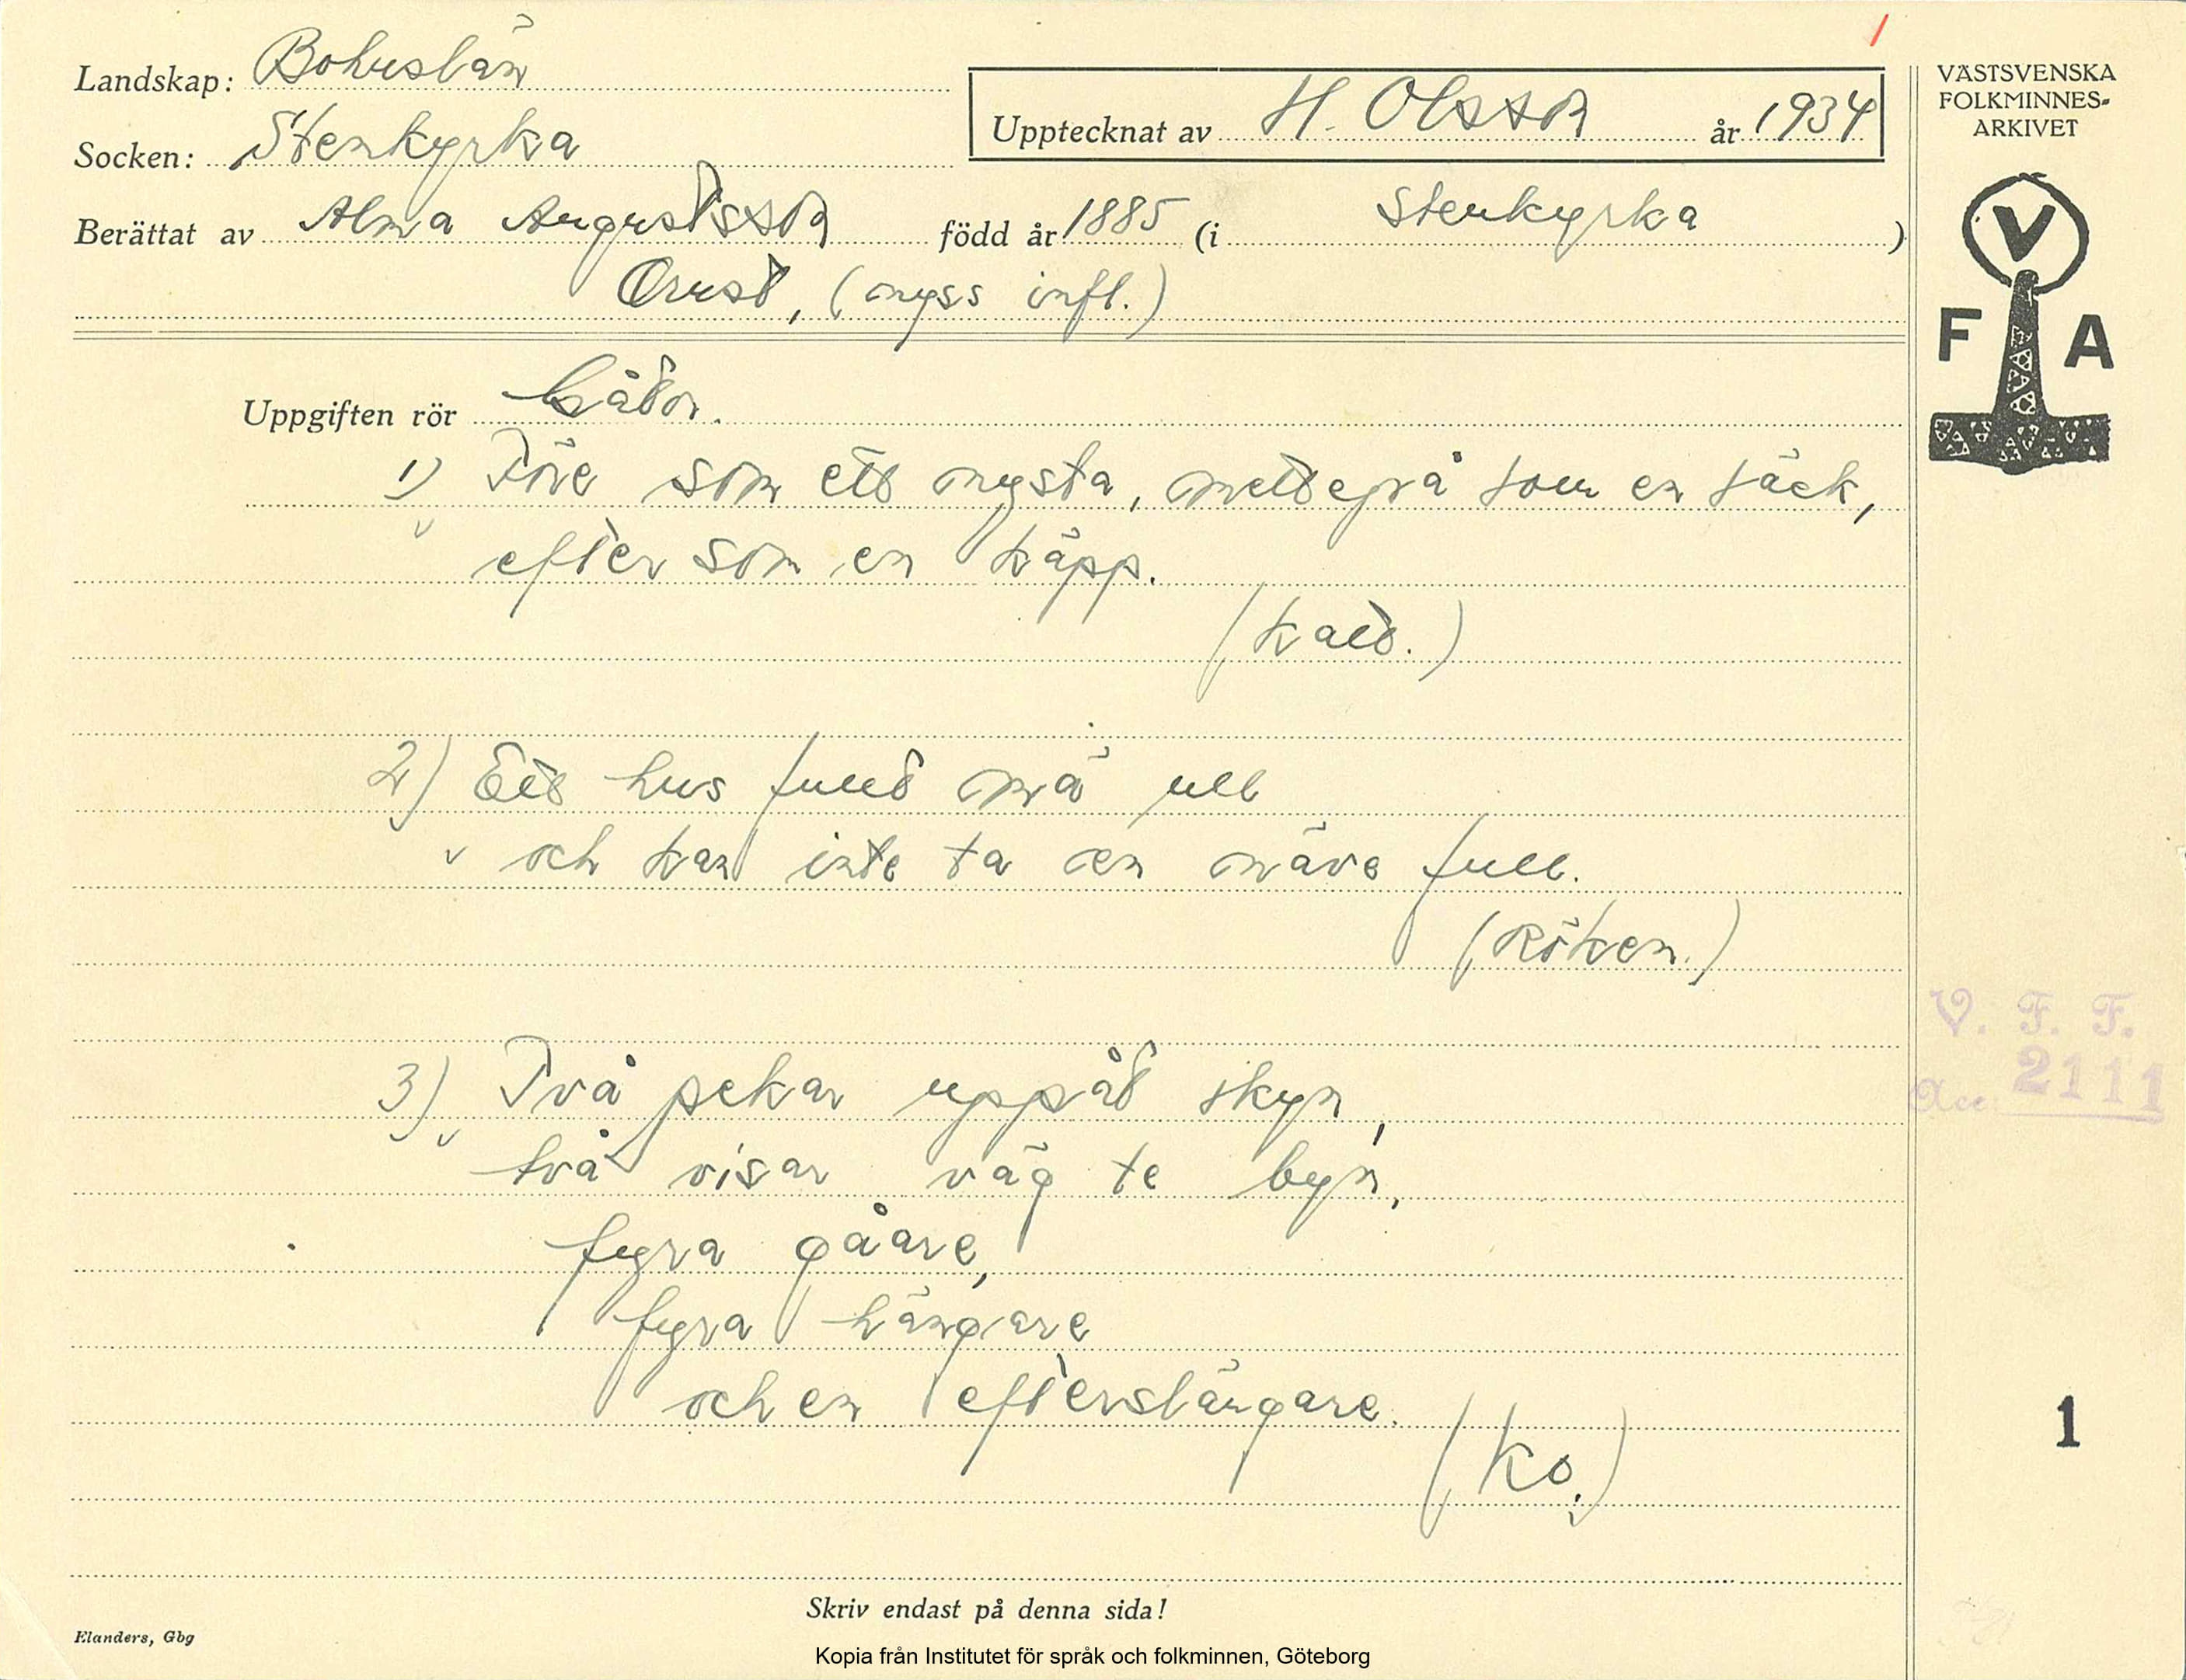 Landskap: Bohuslän
Socken: Stenkyrka
Upptecknat av H. Olsson år 1934
Berättat av Alma Augustsson född år 1885 (i Stenkyrka)
Orust, (nyss infl.)
Uppgiften rör Gåtor.
1) Före som ett nysta, mettepå som en säck,
efter som en käpp.
(katt.)
2) Ett hus fullt mä ull
och kan inte ta en näve full.
(Röken.)
3) Två pekar uppåt skyn,
två visar väg te byn,
fyra gåare,
fyra hängare
och en efterslängare.
(Ko.)
Skriv endast på denna sida!
Elanders, Gbg
VÄSTSVENSKA
FOLKMINNES-
ARKIVET
V
F A
V. F. F.
Acc. 2111
1
Kopia från Institutet för språk och folkminnen, Göteborg